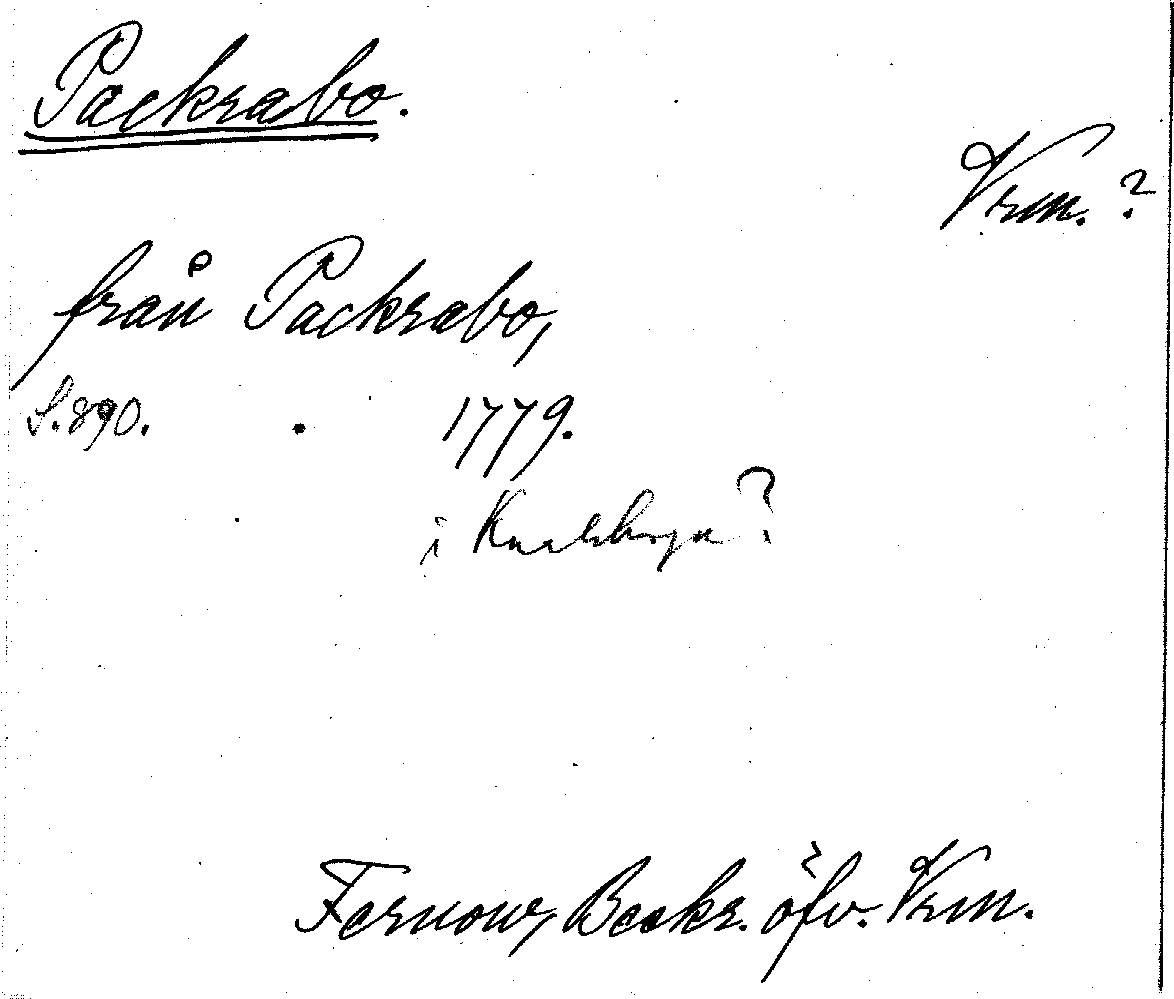 Packrabo.
Vrm. ?
från Packrabo,
S. 890. 1779.
i ?
Fernow, Beskr. öfv. Vrm.